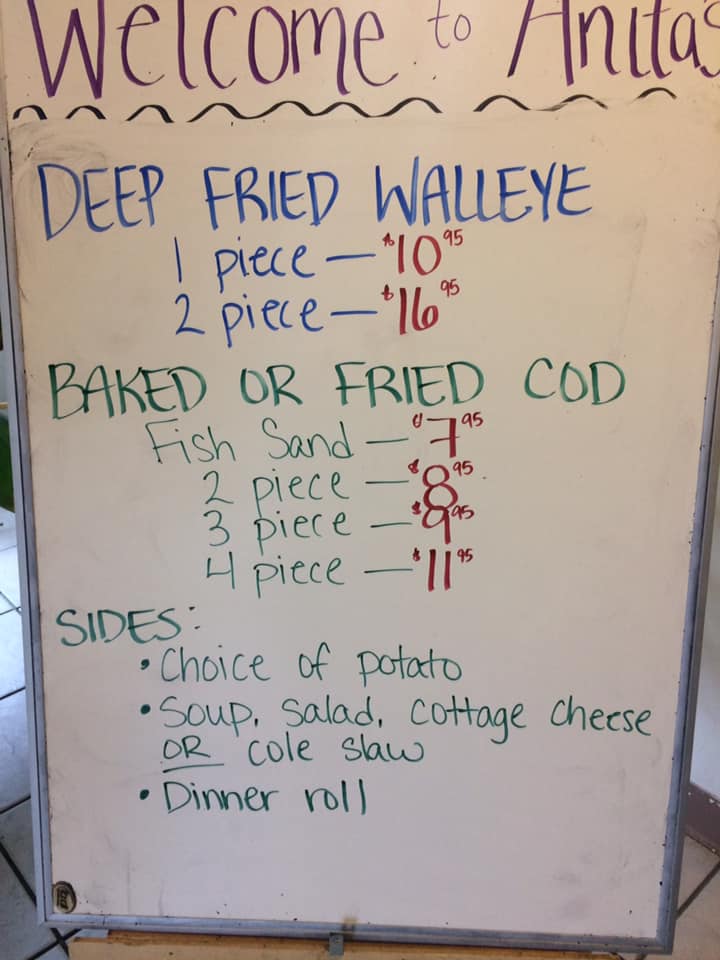 Welcome to Anita's
DEEP FRIED WALLEYE
1 piece — $10 95
2 piece — $16 95
BAKED OR FRIED COD
Fish Sand — $7 95
2 piece — $8 95
3 piece — $9 95
4 piece — $11 95
SIDES:
• Choice of potato
• Soup, Salad, Cottage Cheese
OR cole slaw
• Dinner roll